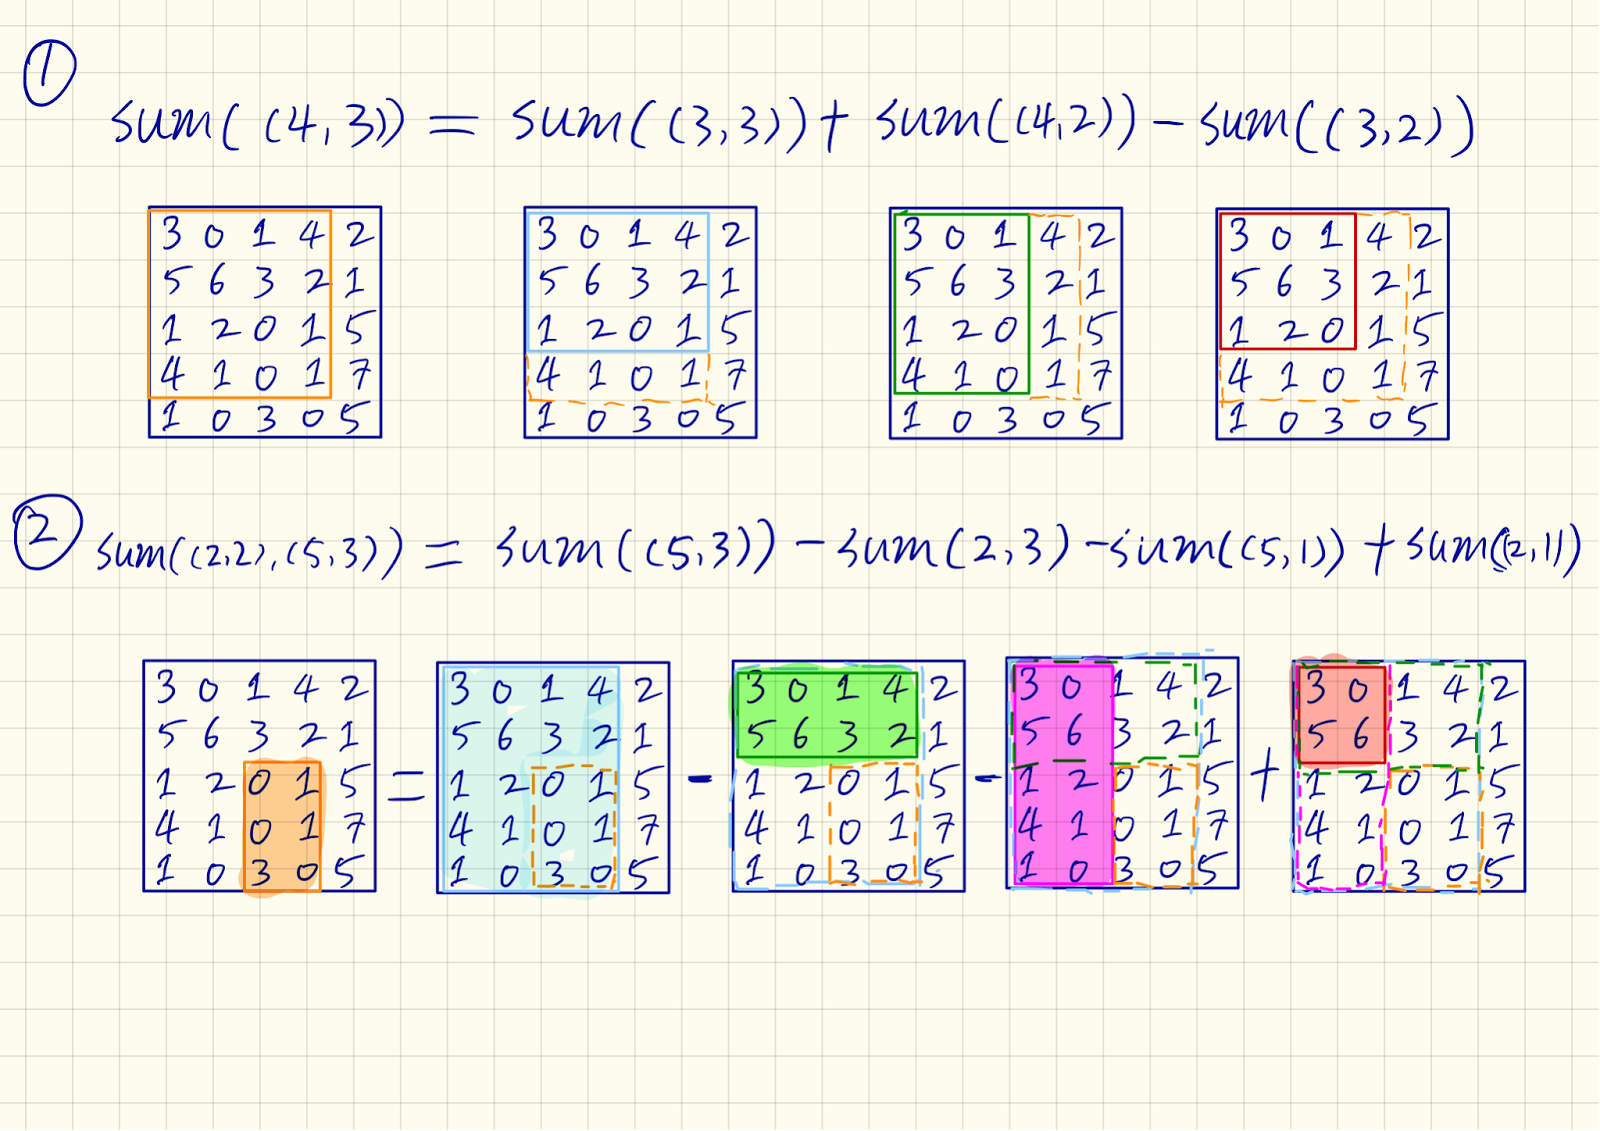 1
sum((4,3)) = sum((3,3)) + sum((4,2)) - sum((3,2))
3 0 1 4 2 3 0 1 4 2 3 0 1 4 2 3 0 1 4 2
5 6 3 2 1 5 6 3 2 1 5 6 3 2 1 5 6 3 2 1
1 2 0 1 5 1 2 0 1 5 1 2 0 1 5 1 2 0 1 5
4 1 0 1 7 4 1 0 1 7 4 1 0 1 7 4 1 0 1 7
1 0 3 0 5 1 0 3 0 5 1 0 3 0 5 1 0 3 0 5
2 sum((2,2),(5,3)) = sum((5,3)) - sum(2,3) - sum((5,1)) + sum((2,1))
3 0 1 4 2 3 0 1 4 2 3 0 1 4 2 3 0 1 4 2 3 0 1 4 2
5 6 3 2 1 5 6 3 2 1 5 6 3 2 1 5 6 3 2 1 5 6 3 2 1
1 2 0 1 5 = 1 2 0 1 5 - 1 2 0 1 5 - 1 2 0 1 5 + 1 2 0 1 5
4 1 0 1 7 4 1 0 1 7 4 1 0 1 7 4 1 0 1 7 4 1 0 1 7
1 0 3 0 5 1 0 3 0 5 1 0 3 0 5 1 0 3 0 5 1 0 3 0 5